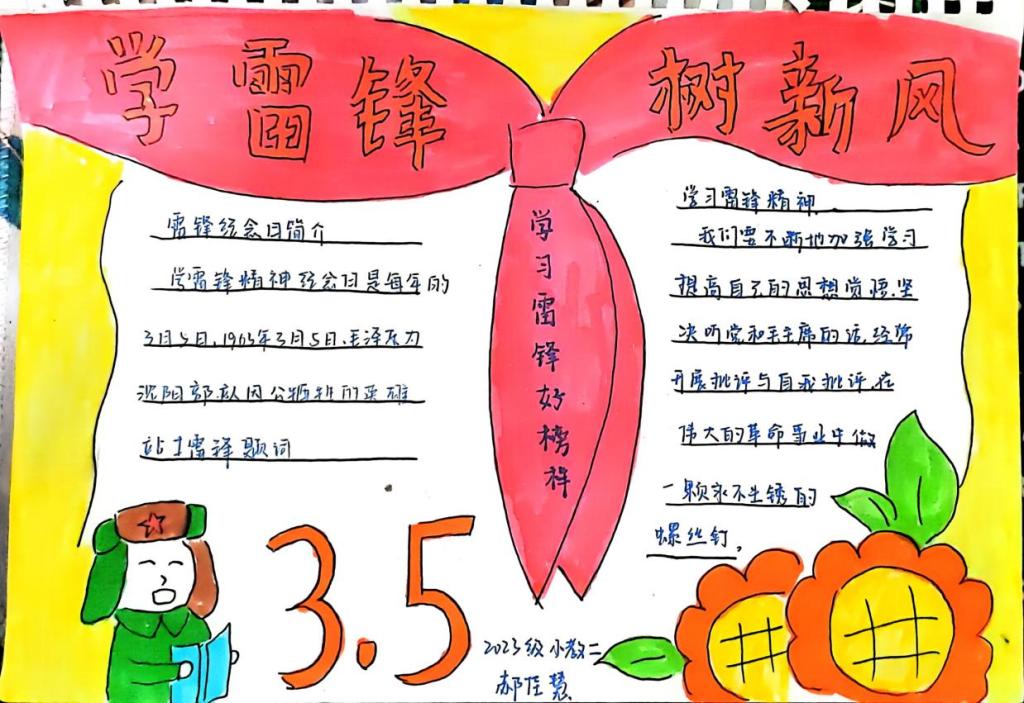 学雷锋 树新风
雷锋纪念日简介
学雷锋精神纪念日是每年的
3月5日,1963年3月5日,毛泽东为
沈阳部队因公牺牲的英雄
战士雷锋题词
学习雷锋好榜样
学习雷锋精神
我们要不断地加强学习
提高自己的思想觉悟,坚
决听党和毛主席的话,经常
开展批评与自我批评,在
伟大的革命事业中做
一颗永不生锈的
螺丝钉。
3.5
2023级小教二
郝佳慧